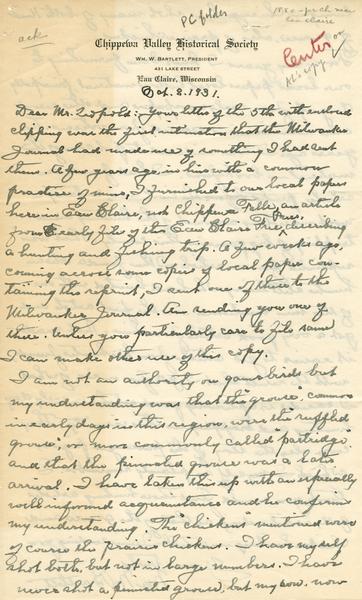 PC folder
ack
Center
Chippewa Valley Historical Society
WM. W. BARTLETT, PRESIDENT
431 LAKE STREET
EAU CLAIRE, WISCONSIN
Oct. 8. 1931.
Dear Mr. Leopold: Your letter of the 5th with enclosed
clipping was the first intimation that the Milwaukee
Journal had made use of something I had sent
them. A few years ago, in line with a common
practice of mine, I furnished to our local papers
here in Eau Claire, not Chippewa Falls, an article
from early file of the Eau Claire Free Press, describing
a hunting and fishing trip. A few weeks ago,
coming across some copies of local paper con-
taining the reprint, I sent one of these to the
Milwaukee Journal. Am sending you one of
these. Unless you particularly care to file same
I can make other use of this copy.
I am not an authority on game birds but
my understanding was that the "grouse", common
in early days in this region, were the ruffled
grouse, or more commonly called "partridge"
and that the pinnated grouse was a late
arrival. I have taken this up with an especially
well informed acquaintance and he confirms
my understanding. The "chickens" mentioned were
of course the prairie chickens. I have myself
shot both, but not in large numbers. I have
never shot a pinnated grouse, but my son, now